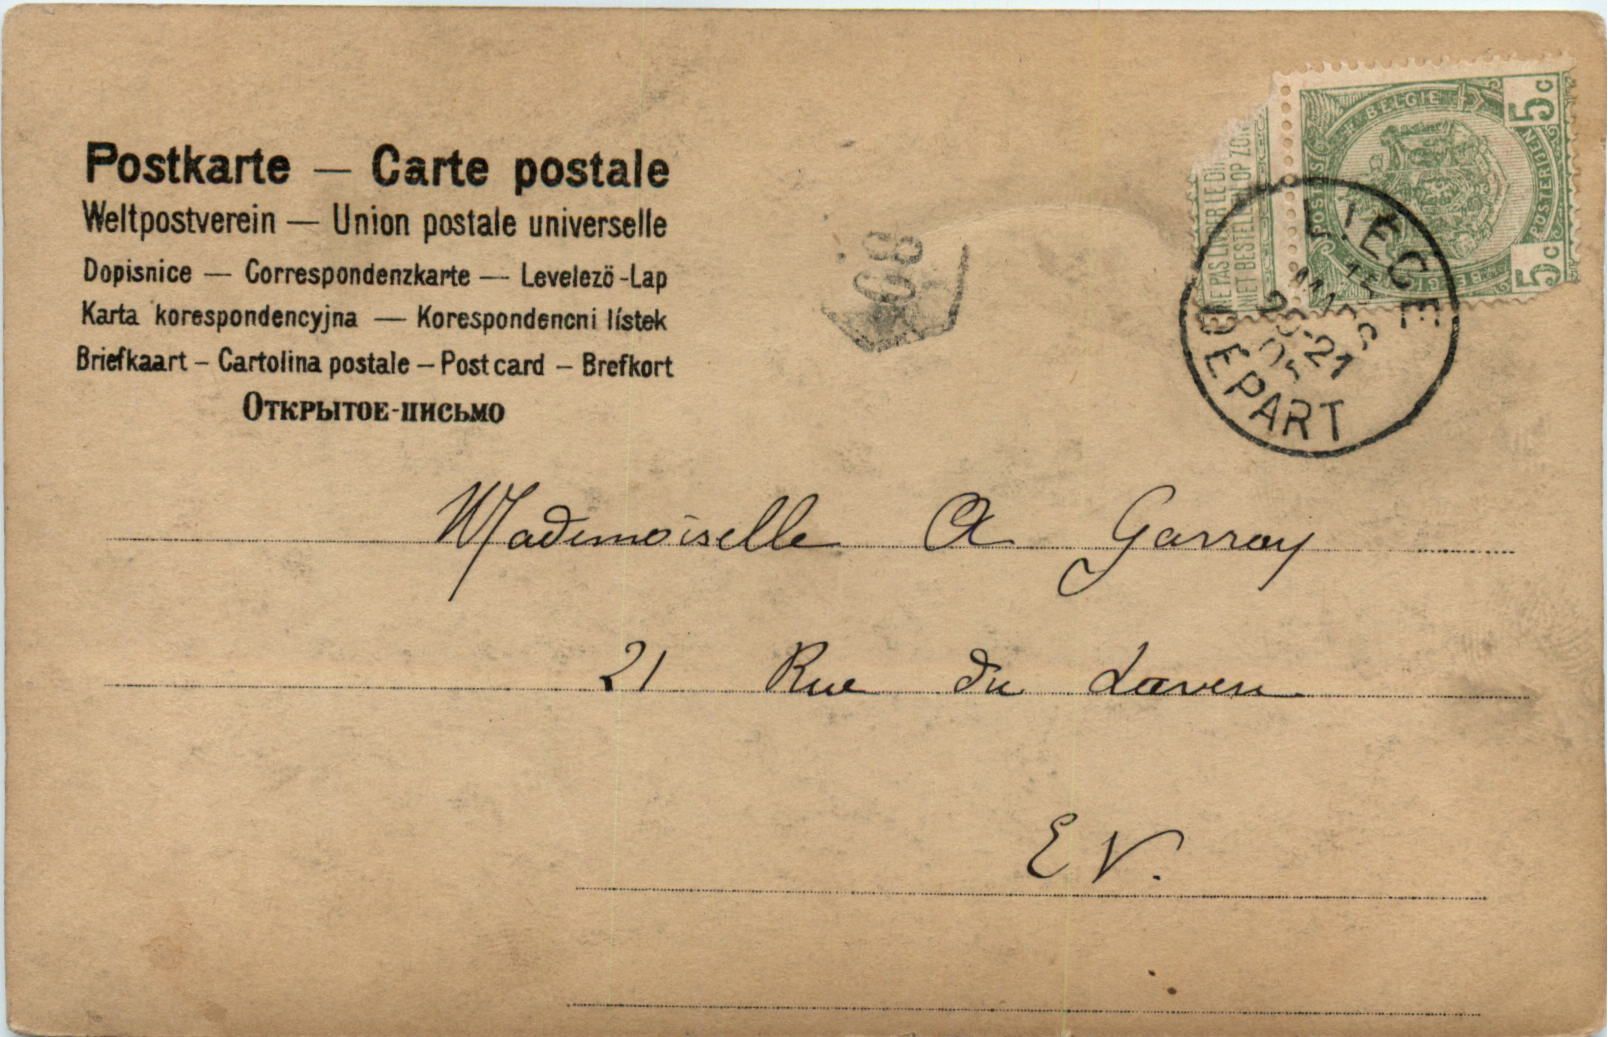 Postkarte — Carte postale
Weltpostverein — Union postale universelle
Dopisnice — Correspondenzkarte — Levelezö-Lap
Karta korespondencyjna — Korespondencni lístek
Briefkaart – Cartolina postale – Post card – Brefkort
Открытое-письмо
BELGIE
POSTERIJEN
POSTES
5c
5c
NE PAS LIVRER LE DI
NIET BESTELLEN OP ZON
LIÈGE
15
MARS
20-21
DEPART
Mademoiselle A Garray
21 Rue du
E V.